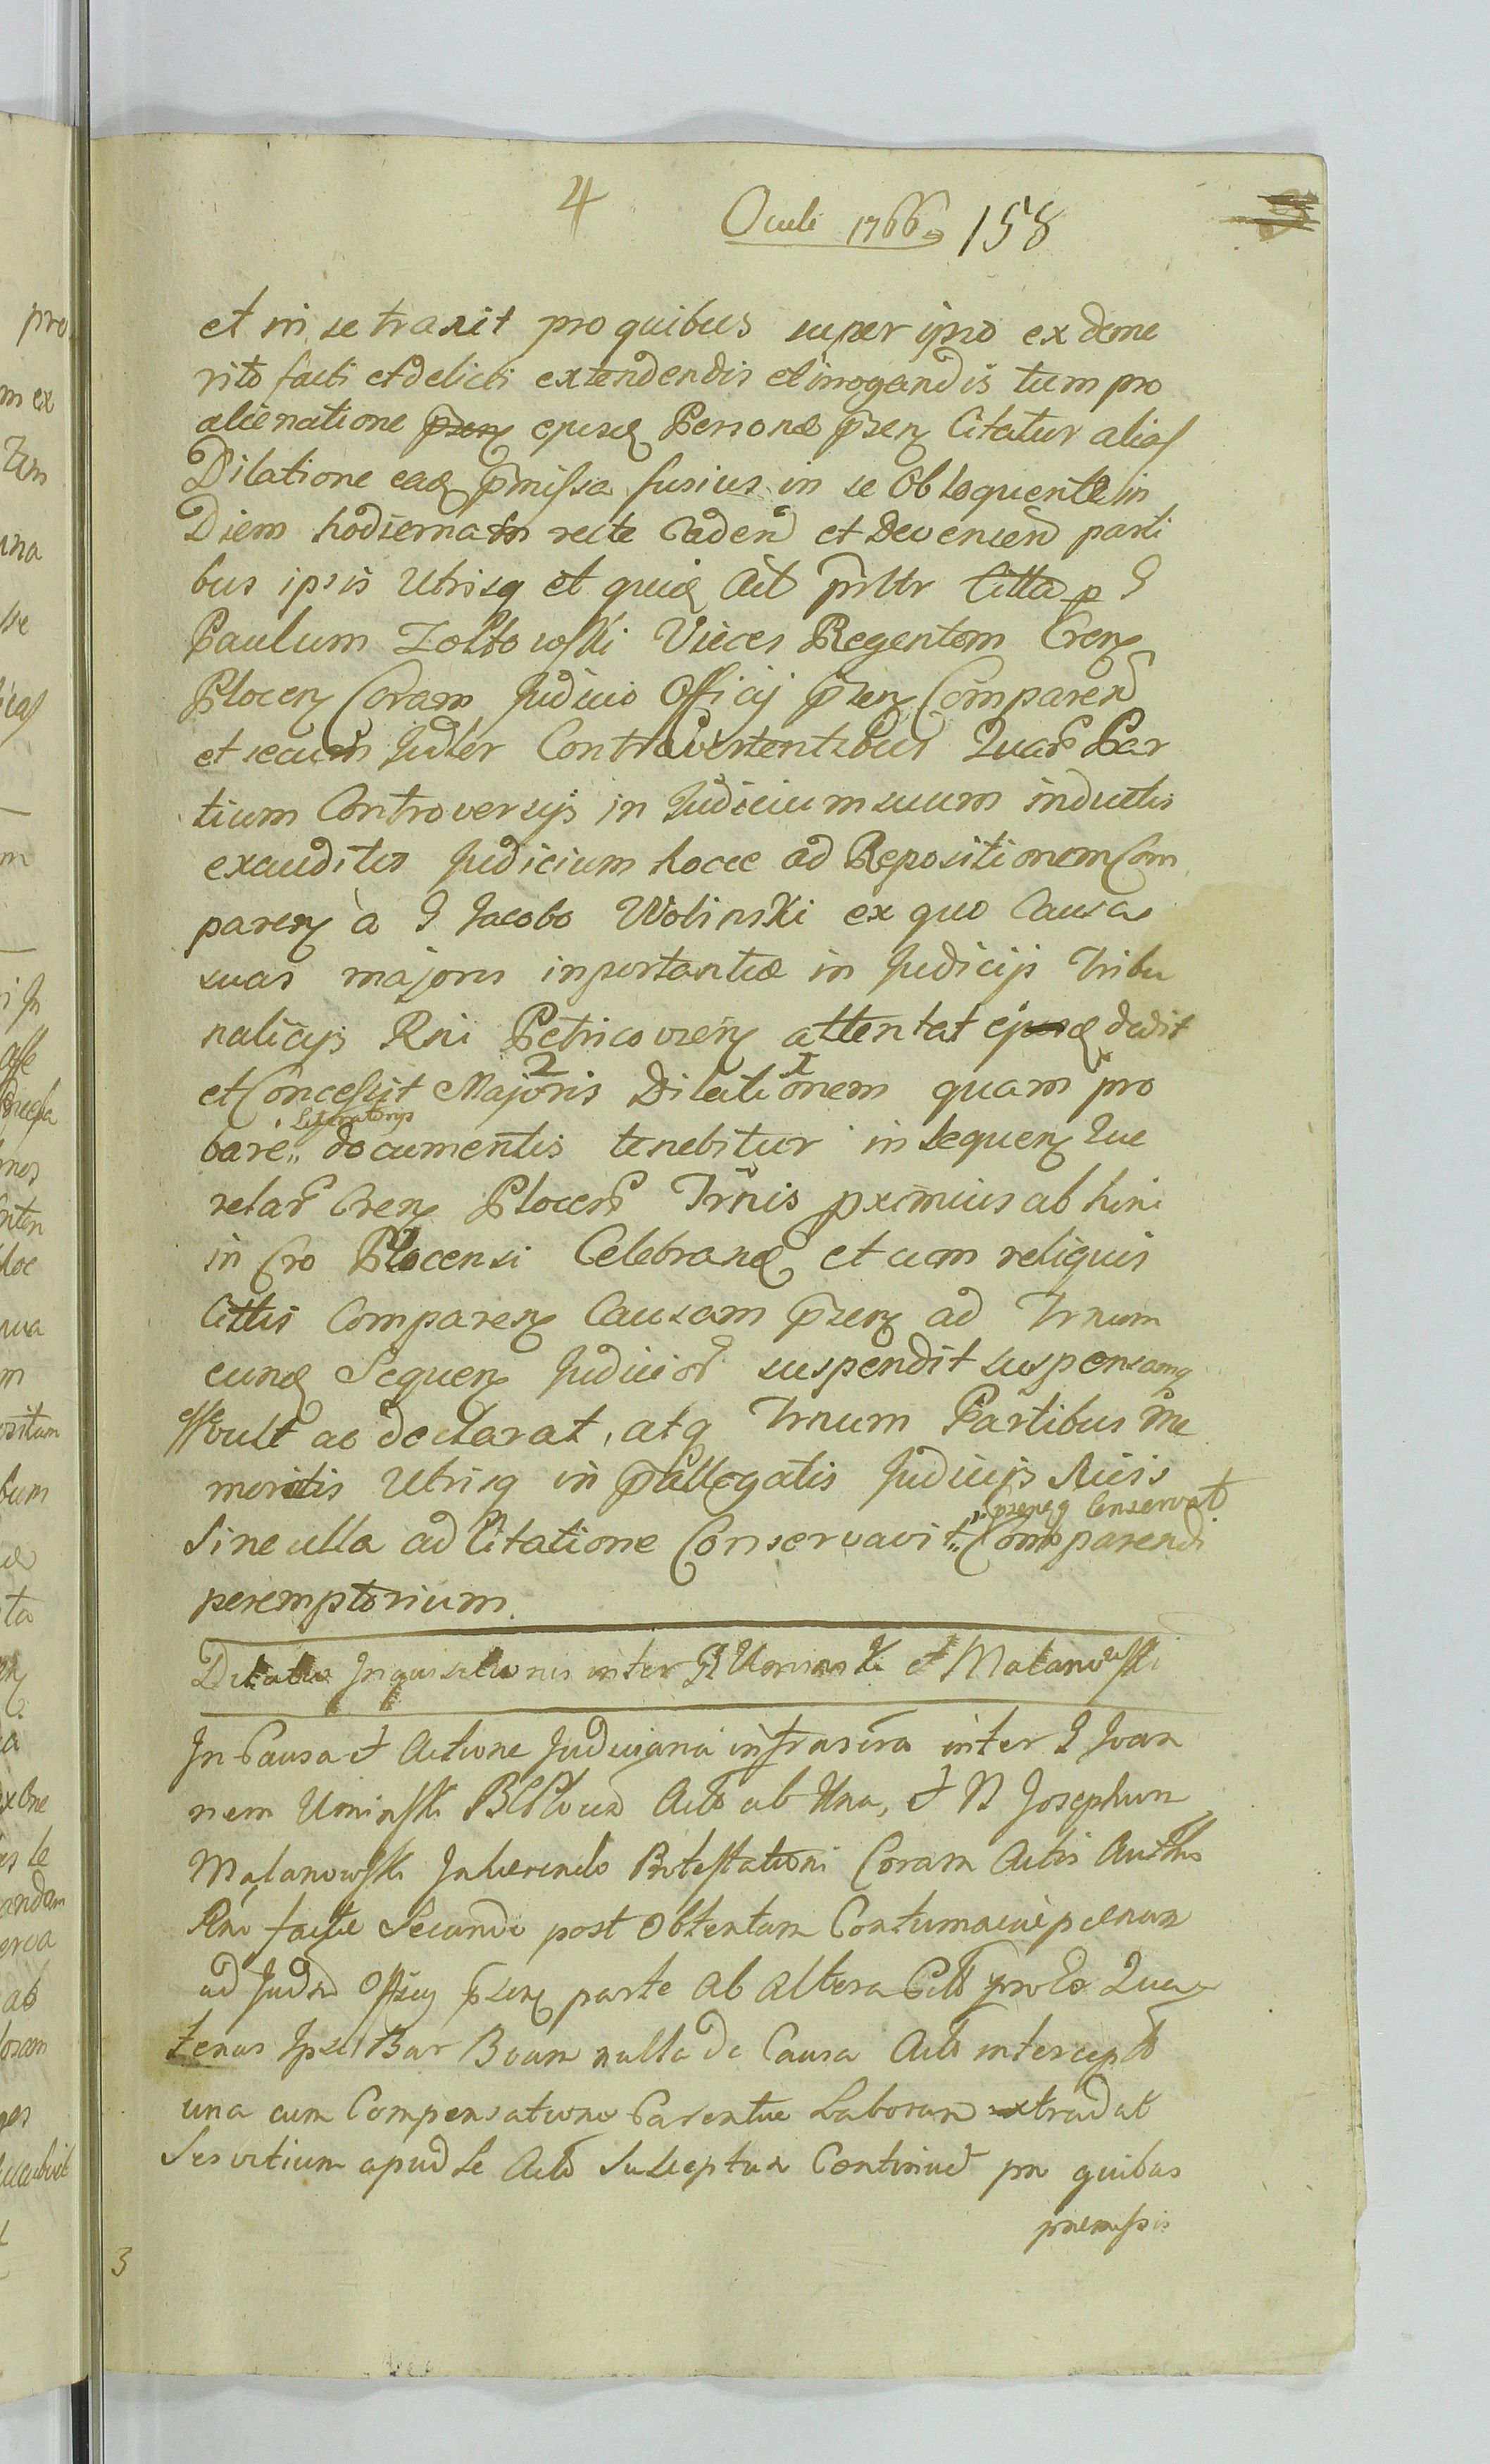 4 Oculi 1766 158
et in se traxit pro quibus super ipso ex deme
rito facti et delicti extendendis et irrogandis tum pro
alienatione ejusd Personæ pzen Citatur alias
Dilatione ead pmissa fusius in se obloquente in
Diem hodiernam recte Caden et Devenien parti
bus ipsis Utrisq et quid Act Citta p G
Paulum Zoltowski Vices Regentem Cren
Plocen Coram Judicio Officij pzen Comparen
et secum Judler Controvertentibus Quar Par
tium Controversijs in Judicium suum inductis
exauditis Judicium hocce ad Repositionem Com
paren à G Jacobo Wolinski ex quo Causas
suas majoris inportantiæ in Judicijs Tribu
nalicijs Rni Petricovien attentat ejusd dedit
et Concessit Majoris 2 Dilationem 1 quam pro
bare Literatorijs documentis tenebitur in sequen Que
relar Cren Plocen Trnis proximius ab hinc
in Cro Plocensi Celebrand et cum reliquis
Cittis Comparen Causam pzen ad Trnum
eund Sequen Judicior suspendit suspensamq
esse vult ac declarat, atq Trnum Partibus me
moratis Utrisq in pallegatis Judicijs Suis
Sine ulla ad Citatione Conservavit pzenq Conservat Comparendi
peremptorium.
Dilatio Inquisitionis inter G Uminski et Malanowski
In Causa et Actione Judiciaria infrascra inter G Joan
nem Uminski Act ab Una, et N Josephum
Malanowski Inhærendo Protestationi Coram Actis Authis
Rni factæ Secundo post obtentam Contumaciæ pœnam
ad Jud Officij pzen parte ab altera Citt pro Eo Qua
tenus Ipse Bar Boum nulla de Causa Act intercept
una cum Compensatione Carentiæ Laborum extradat
Servitium apud Se Act Susceptum Continuet pro quibus
præmissis
3